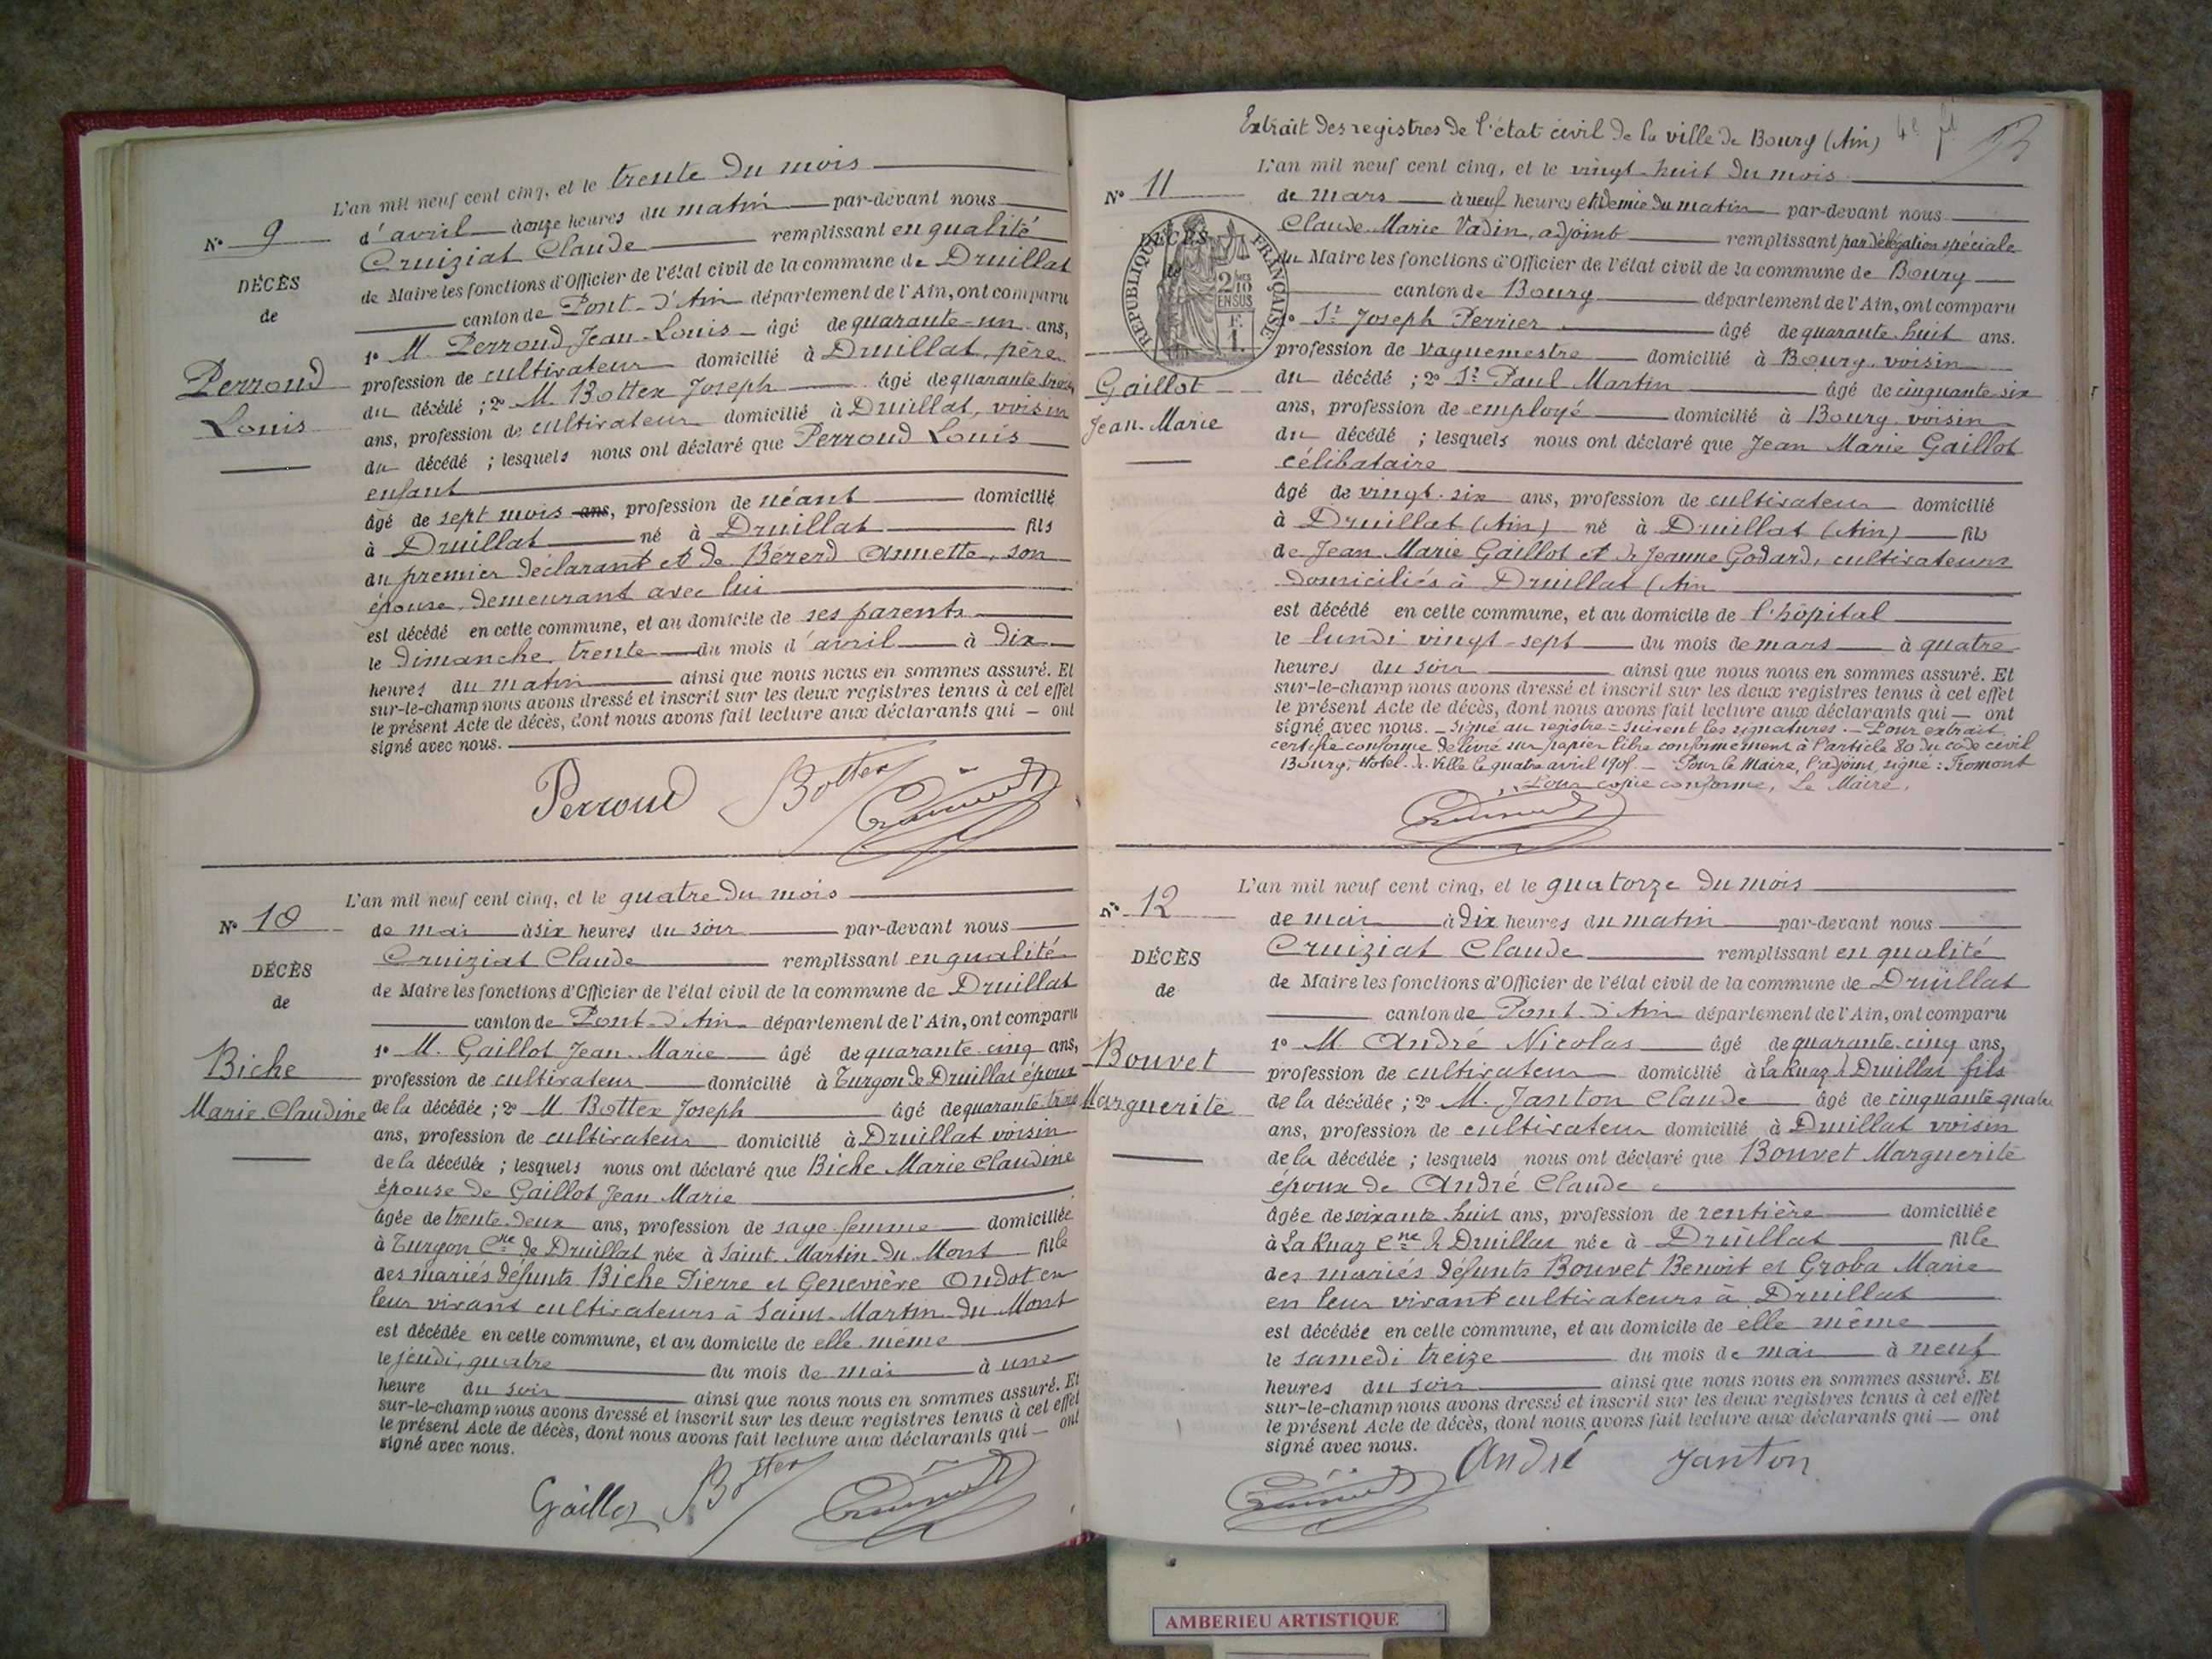 L'an mil neuf cent cinq, et le trente du mois
N° 9
d'avril à onze heures du matin par-devant nous
Cruiziat Claude remplissant en qualité
DÉCÈS
de Maire les fonctions d'Officier de l'état civil de la commune de Druillat
de
canton de Pont-d'Ain département de l'Ain, ont comparu
1° M. Perroud Jean-Louis âgé de quarante-un ans,
Perroud
profession de cultivateur domicilié à Druillat, père
Louis
du décédé ; 2° M. Bottex Joseph âgé de quarante trois
ans, profession de cultivateur domicilié à Druillat, voisin
du décédé ; lesquels nous ont déclaré que Perroud Louis
enfant
âgé de sept mois ans, profession de néant domicilié
à Druillat né à Druillat fils
du premier déclarant et de Bérerd Annette, son
épouse, demeurant avec lui
est décédé en cette commune, et au domicile de ses parents
le Dimanche trente du mois d'avril à dix
heures du matin ainsi que nous nous en sommes assuré. Et
sur-le-champ nous avons dressé et inscrit sur les deux registres tenus à cet effet
le présent Acte de décès, dont nous avons fait lecture aux déclarants qui — ont
signé avec nous.
Perroud Bottex Cruiziat
L'an mil neuf cent cinq, et le quatre du mois
N° 10
de mai à six heures du soir par-devant nous
Cruiziat Claude remplissant en qualité
DÉCÈS
de Maire les fonctions d'Officier de l'état civil de la commune de Druillat
de
canton de Pont-d'Ain département de l'Ain, ont comparu
1° M. Gaillot Jean-Marie âgé de quarante-cinq ans,
Biche
profession de cultivateur domicilié à Turgon de Druillat époux
Marie Claudine
de la décédée ; 2° M. Bottex Joseph âgé de quarante trois
ans, profession de cultivateur domicilié à Druillat voisin
de la décédée ; lesquels nous ont déclaré que Biche Marie Claudine
épouse de Gaillot Jean Marie
âgée de trente-deux ans, profession de sage-femme domiciliée
à Turgon Cne de Druillat née à Saint-Martin-du-Mont fille
des mariés défunts Biche Pierre et Geneviève Oudot en
leur vivant cultivateurs à Saint-Martin-du-Mont
est décédée en cette commune, et au domicile de elle-même
le jeudi, quatre du mois de mai à une
heure du soir ainsi que nous nous en sommes assuré. Et
sur-le-champ nous avons dressé et inscrit sur les deux registres tenus à cet effet
le présent Acte de décès, dont nous avons fait lecture aux déclarants qui — ont
signé avec nous.
Gaillot Bottex Cruiziat
Extrait des registres de l'état civil de la ville de Bourg (Ain)
L'an mil neuf cent cinq, et le vingt-huit du mois
N° 11
de mars à neuf heures et demie du matin par-devant nous
Claude-Marie Vadin, adjoint remplissant par délégation spéciale
DÉCÈS
RÉPUBLIQUE FRANÇAISE
2/10 EN SUS
F. 1.
du Maire les fonctions d'Officier de l'état civil de la commune de Bourg
canton de Bourg département de l'Ain, ont comparu
1° Sr Joseph Perrier âgé de quarante-huit ans.
profession de Vaguemestre domicilié à Bourg, voisin
Gaillot
du décédé ; 2° Sr Paul Martin âgé de cinquante-six
Jean-Marie
ans, profession de employé domicilié à Bourg, voisin
du décédé ; lesquels nous ont déclaré que Jean Marie Gaillot
célibataire
âgé de vingt-six ans, profession de cultivateur domicilié
à Druillat (Ain) né à Druillat (Ain) fils
de Jean Marie Gaillot et de Jeanne Godard, cultivateurs
domiciliés à Druillat (Ain
est décédé en cette commune, et au domicile de l'hôpital
le lundi vingt-sept du mois de mars à quatre
heures du soir ainsi que nous nous en sommes assuré. Et
sur-le-champ nous avons dressé et inscrit sur les deux registres tenus à cet effet
le présent Acte de décès, dont nous avons fait lecture aux déclarants qui — ont
signé avec nous. — Signé au registre = suivent les signatures. — Pour extrait
certifié conforme délivré sur papier libre conformément à l'article 80 du code civil
Bourg, Hôtel de Ville le quatre avril 1905 — Pour le Maire, l'adjoint, signé : Fromont
Pour copie conforme, Le Maire,
Cruiziat
L'an mil neuf cent cinq, et le quatorze du mois
N° 12
de mai à dix heures du matin par-devant nous
Cruiziat Claude remplissant en qualité
DÉCÈS
de Maire les fonctions d'Officier de l'état civil de la commune de Druillat
de
canton de Pont-d'Ain département de l'Ain, ont comparu
1° M. André Nicolas âgé de quarante-cinq ans,
Bouvet
profession de cultivateur domicilié à La Ruaz d Druillat fils
Marguerite
de la décédée ; 2° M. Janton Claude âgé de cinquante quatre
ans, profession de cultivateur domicilié à Druillat voisin
de la décédée ; lesquels nous ont déclaré que Bouvet Marguerite
épouse de André Claude
âgée de soixante-huit ans, profession de rentière domiciliée
à La Ruaz Cne de Druillat née à Druillat fille
des mariés défunts Bouvet Benoit et Groba Marie
en leur vivant cultivateurs à Druillat
est décédée en cette commune, et au domicile de elle-même
le samedi treize du mois de mai à neuf
heures du soir ainsi que nous nous en sommes assuré. Et
sur-le-champ nous avons dressé et inscrit sur les deux registres tenus à cet effet
le présent Acte de décès, dont nous avons fait lecture aux déclarants qui — ont
signé avec nous.
Cruiziat André Janton
AMBERIEU ARTISTIQUE